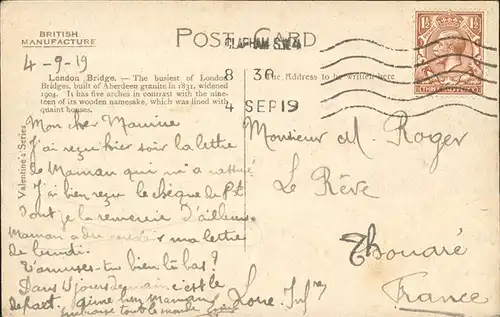 BRITISH
MANUFACTURE
POST CARD
4-9-19
London Bridge. — The busiest of London
Bridges, built of Aberdeen granite in 1831, widened
1904. It has five arches in contrast with the nine-
teen of its wooden namesake, which was lined with
quaint houses.
Valentine's Series
Mon cher Maurice
J'ai reçu hier soir la lettre
de Maman qui m'a
J'ai bien reçu le chèque de
dont je la remercie D'ailleurs
Maman a dû ma lettre
de lundi.
T'amuses-tu bien là bas?
Dans 8 jours demain c'est le
départ. Aime bien Maman
Embrasse tout le monde
CLAPHAM S.W.4
8 30
4 SEP 19
The Address to be written here
Monsieur M. Roger
Le Rêve
Thouaré
Loire Infre
France